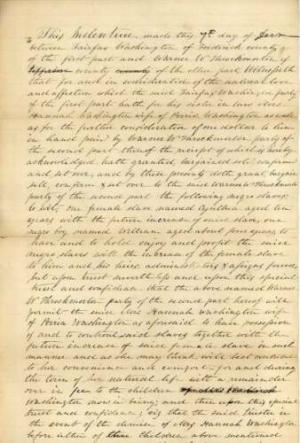 This Indenture, made this 7th day of
between Fairfax Washington of Frederick county
of the first part and Warner W Throckmorton of
county of the other part Witnesseth
that for and in consideration of the natural love
and affection which the said Fairfax Washington party
of the first part hath for his sister in law
Hannah Washington wife of Perrin Washington
as for the further consideration of one dollar to him
in hand paid by Warner W Throckmorton party of
the second part thereof the receipt of which is hereby
acknowledged hath granted, bargained sold confirm
and set over, and by these presents doth grant bargain
sell, confirm & set over to the said Warner W Throckmorton
party of the second part the following negro slaves:
to wit, One female slave named aged ten
years with the future increase of said slave, one
negro boy named William aged about four years to
have and to hold enjoy and profit the said
negro slaves with the increase of the female slave
to him and his heirs, administrators & assigns forever,
but upon trust nevertheless and upon this special
trust and confidence that the above named Warner
W Throckmorton party of the second part hereof will
permit the said Mrs Hannah Washington wife
of Perrin Washington as aforesaid to have possession
of and to control said slaves together with the
future increase of said female slave in such
manner and as she may think will best conduce
to her convenience and comfort for and during
the term of her natural life with a remainder
over in fee to the children
Washington now in being; and then upon this special
trust and confidence, viz that the said trustee in
the event of the demise of Mrs Hannah Washington
before either of children above mentioned